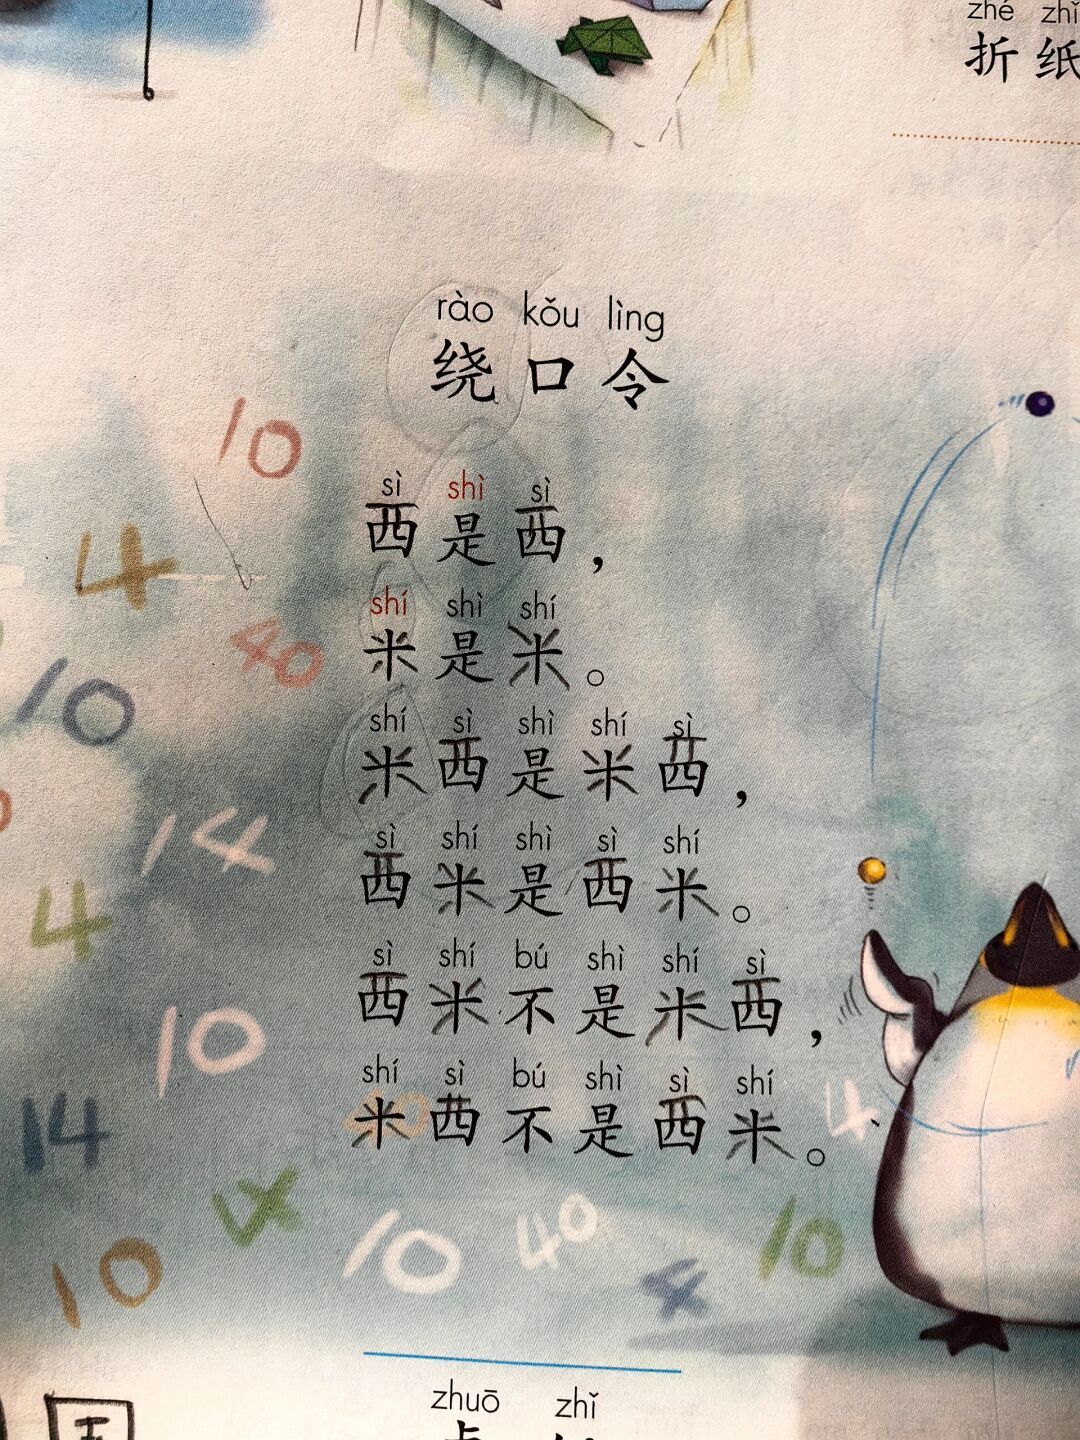 zhé zhǐ
折纸
rào kǒu lìng
绕口令
10
sì shì sì
西是西，
4
shí shì shí
米是米。
40
10
shí sì shì shí sì
米西是米西，
14
sì shí shì sì shí
西米是西米。
4
sì shí bú shì shí sì
西米不是米西，
10
shí sì bú shì sì shí
米西不是西米。
4
14
4
10
40
10
4
10
zhuō zhǐ